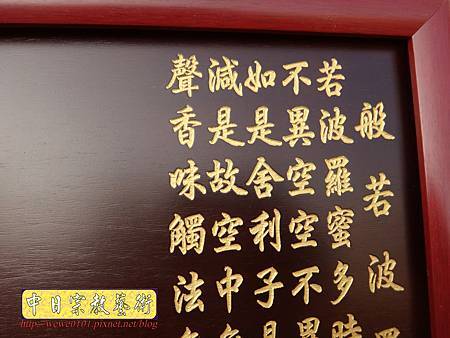 般若波
若波羅蜜多時
不異空空不異
如是舍利子是
減是故空中
聲香味觸法
中日宗教藝術
http://wewe0101.pixnet.net/blog